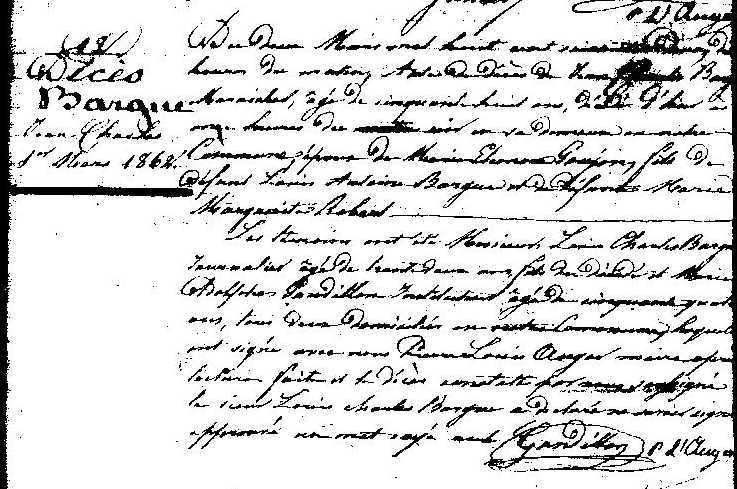 P. Ld Auger
12
Décès
Bargue
Jean Charles
1er Mars 1862.
Du deux Mars mil huit cent soixante deux, dix
heures du matin, Acte de décès de Jean Charles Bargue
Manouvrier, âgé de cinquante huit ans, décédé d'hier à
onze heures du soir en sa demeure en notre
Commune, époux de Marie Etiennette Goujon, fils de
défunt Louis Antoine Bargue et de défunte Marie
Marguerite Robert
Les témoins ont été Messieurs Louis Charles Bargue
Journalier âgé de trente deux ans, fils du décédé et Marie
Adolphe Gandillon Instituteur âgé de cinquante quatre
ans, tous deux domiciliés en notre Commune, lesquels
ont signé avec nous Pierre Louis Auger maire après
lecture faite et le décès constaté par nous soussigné
le sieur Louis Charles Bargue a déclaré ne savoir signer
approuvé un mot rayé nul. Gandillon P. Ld Auger